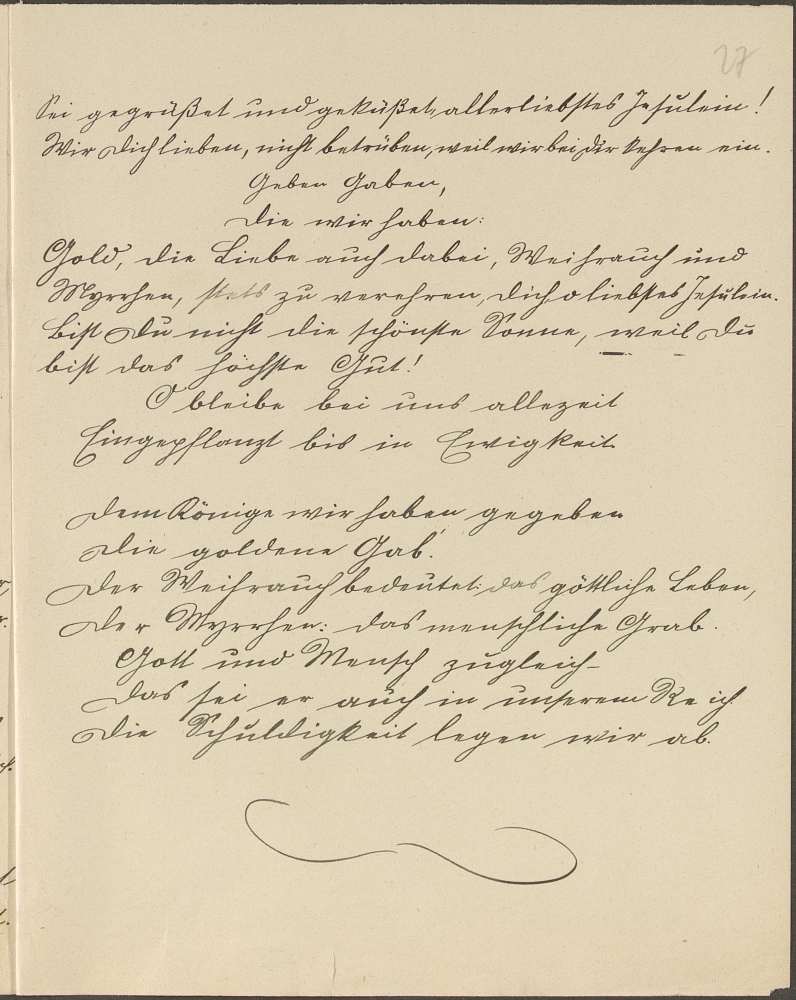 27
Sei gegrüßet und geküßet, allerliebstes Jesulein!
Wir Dich lieben, nicht betrüben, weil wir bei Dir kehren ein.
Geben Gaben,
Die wir haben:
Gold, die Liebe auch dabei, Weihrauch und
Myrrhen, stets zu verehren, Dich, o liebstes Jesulein.
Bist Du nicht die schönste Sonne, weil Du
bist das höchste Gut!
O bleibe bei uns allezeit
Eingepflanzt bis in Ewigkeit.
Dem Könige wir haben gegeben
Die goldene Gab'.
Der Weihrauch bedeutet: das göttliche Leben,
Der Myrrhen: das menschliche Grab.
Gott und Mensch zugleich-
Das sei er auch in unserem Reich.
Die Schuldigkeit legen wir ab.